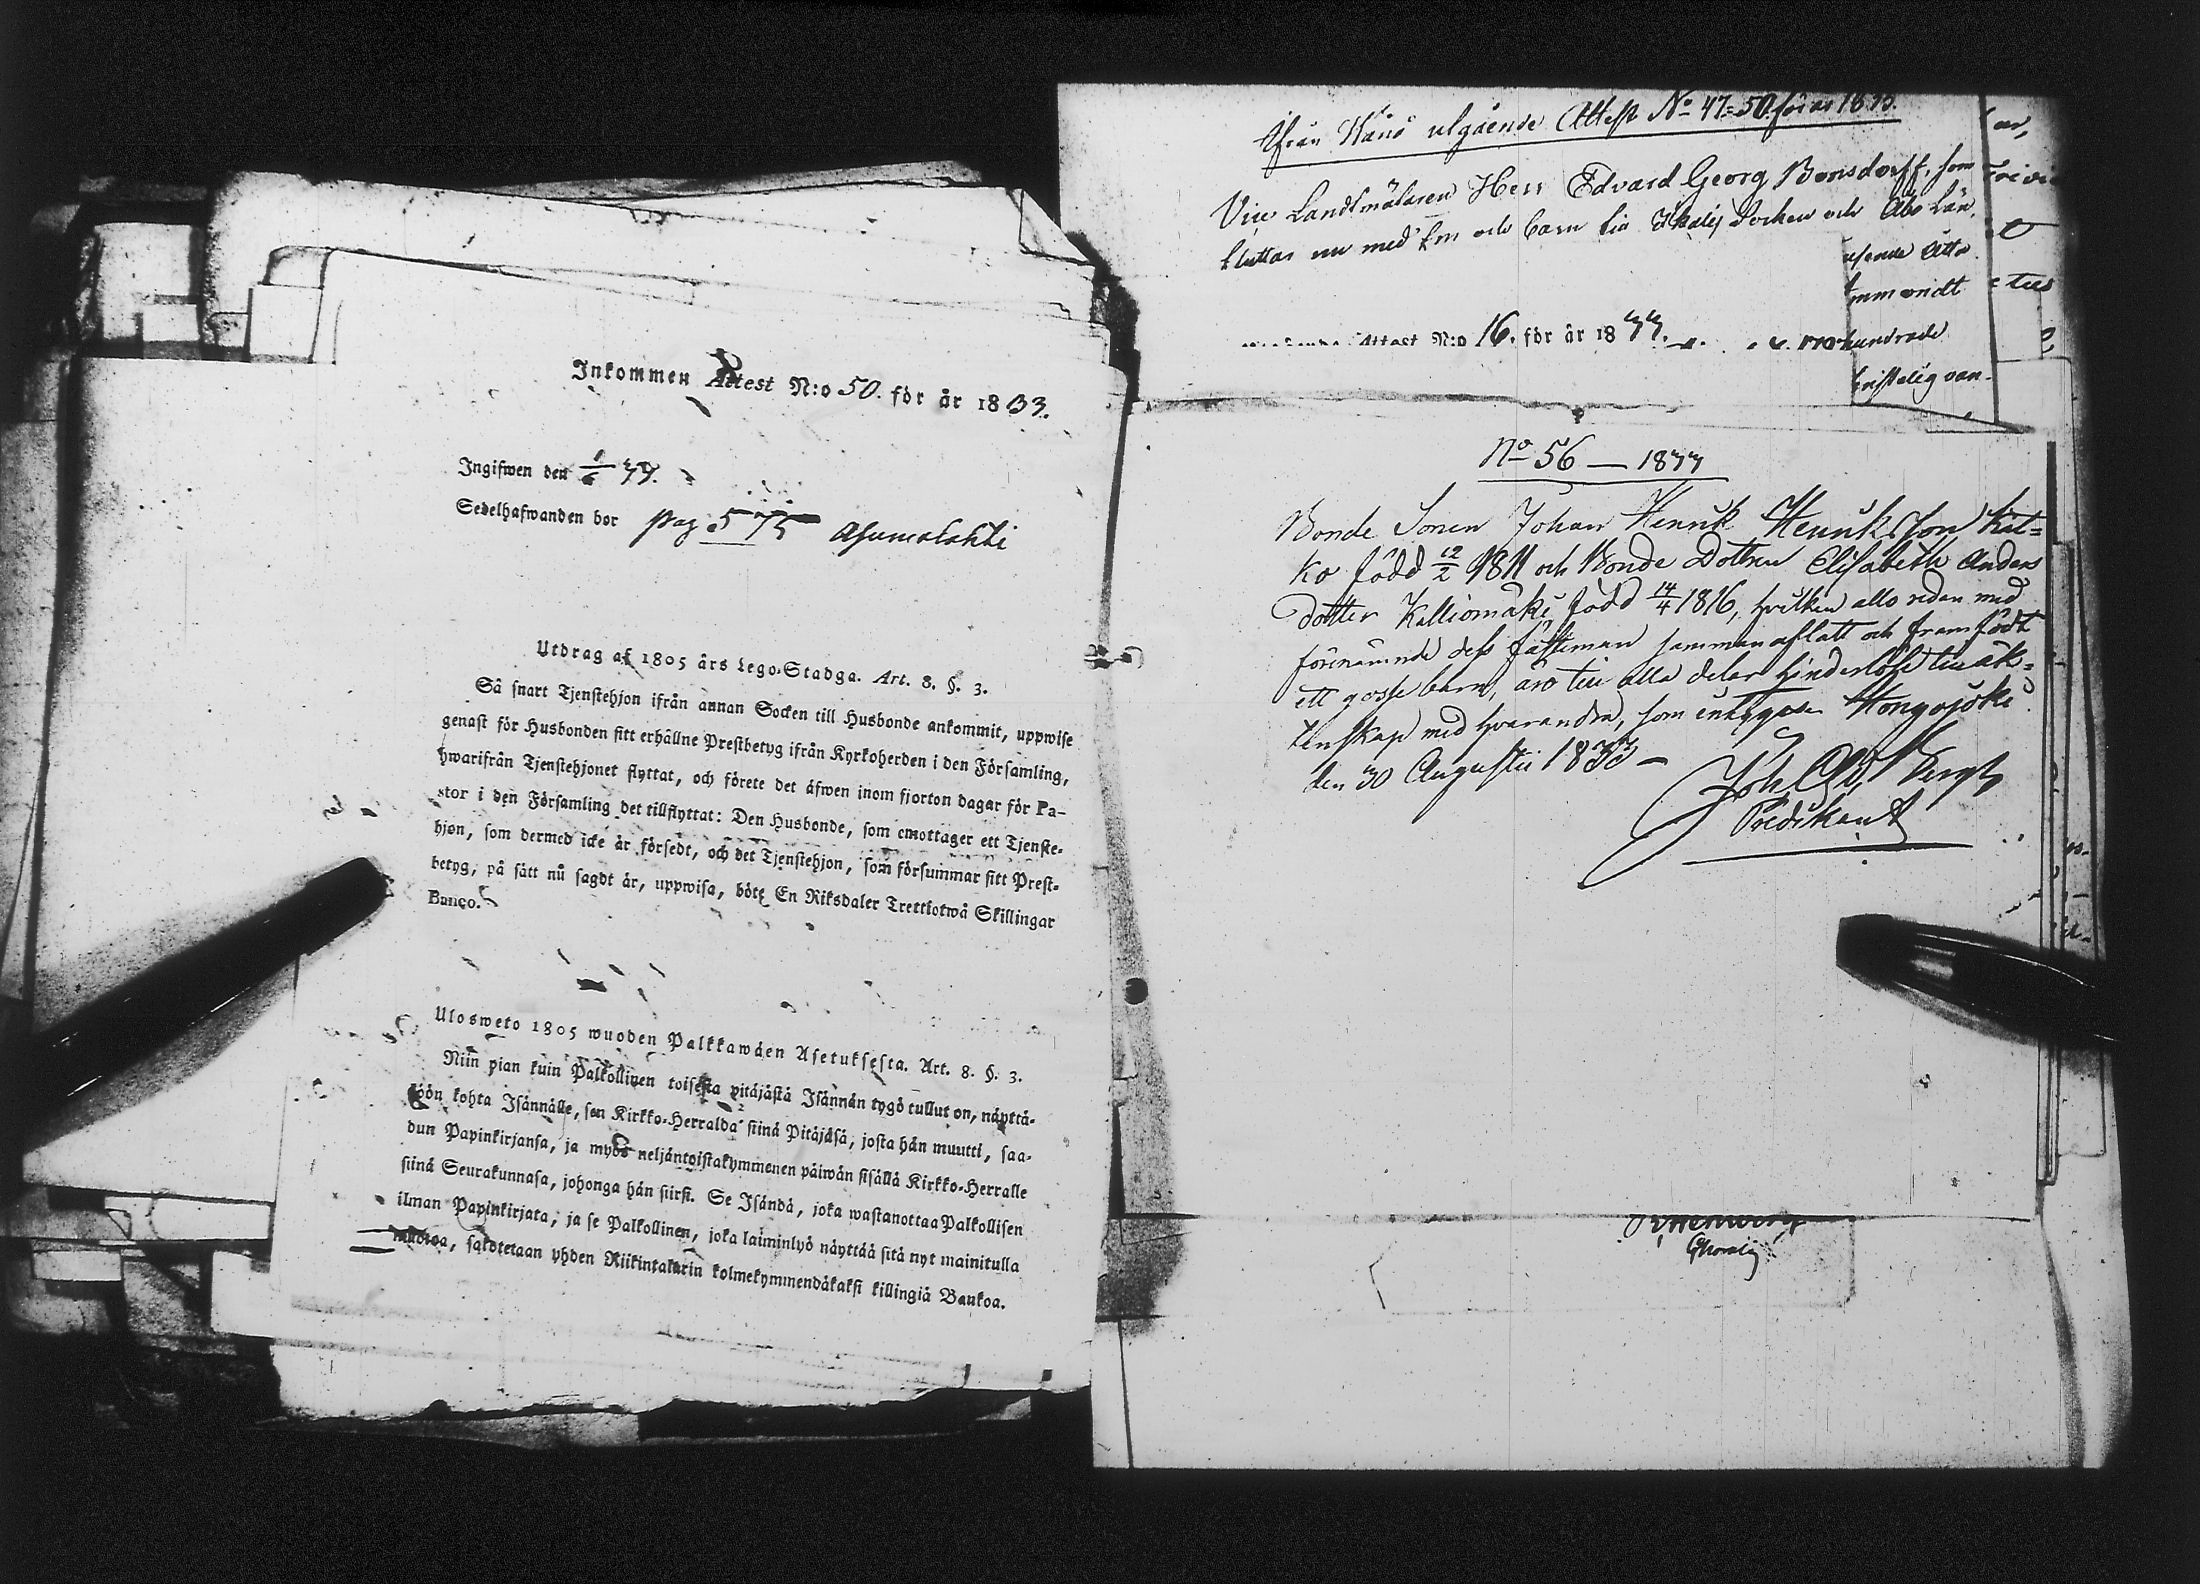 Inkommen Attest N:o 50. för år 1833.
Ingifwen den 1/6 33.
Sedelhafwanden bor pag 575 Asumalahti
Utdrag af 1805 års Lego-Stadga. Art. 8. §. 3.
Så snart Tjenstehjon ifrån annan Socken till Husbonde ankommit, uppwise
genast för Husbonden sitt erhållne Prestbetyg ifrån Kyrkoherden i den Församling,
hwarifrån Tjenstehjonet flyttat, och förete det äfwen inom fjorton dagar för Pa-
stor i den Församling det tillflyttat: Den Husbonde, som emottager ett Tjenste-
hjon, som dermed icke är försedt, och det Tjenstehjon, som försummar sitt Prest-
betyg, på sätt nu sagdt är, uppwisa, böte En Riksdaler Trettiotwå Skillingar
Banco.
Ulosweto 1805 wuoden Palkkawäen Asetuksesta. Art. 8. §. 3.
Niin pian kuin Palkollinen toisesta pitäjästä Isännän tygö tullut on, näyttä-
köön kohta Isännälle, sen Kirkko-Herralda siinä Pitäjäsä, josta hän muutti, saa-
dun Papinkirjansa, ja myös neljäntoistakymmenen päiwän sisällä Kirkko-Herralle
siinä Seurakunnasa, johonga hän siirsi. Se Isändä, joka wastanottaa Palkollisen
ilman Papinkirjata, ja se Palkollinen, joka laiminlyö näyttää sitä nyt mainitulla
muotoa, sakotetaan yhden Riikintalarin kolmekymmendäkaksi killingiä Bankoa.
Ifrån Wånå utgående Attest No 47=50 för år 1833.
Vice Landtmätaren Herr Edvard Georg Bonsdorff, som
fluttar nu med fru och barn till Ikalis Socken och Åbo Län.
Attest N:o 16. för år 1833.
hundrade
No 56 — 1833
Bonde Sonen Johan Henrik Henriksson Kat=
ko född 12/2 1811 och Bonde Dottren Elisabeth Anders
dotter Kalliomäki född 14/4 1816, hvilken allo redan med
förenämnde dess fästeman sammanaflatt och framfödt
ett gosse barn, äro till alla delar hinderlöse till äk=
tenskap med hvarandra, som intygas. Hongojoki
den 30 Augusti 1833 —
Joh Ol Bergh
Predikant